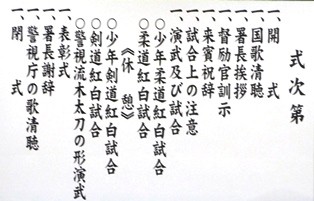 式次第
一、開式
一、国歌清聴
一、署長挨拶
一、督励官訓示
一、来賓祝辞
一、試合上の注意
一、演武及び試合
○少年柔道紅白試合
○柔道紅白試合
《休憩》
○少年剣道紅白試合
○剣道紅白試合
○警視流木太刀の形演武
一、表彰式
一、署長謝辞
一、警視庁の歌清聴
一、閉式